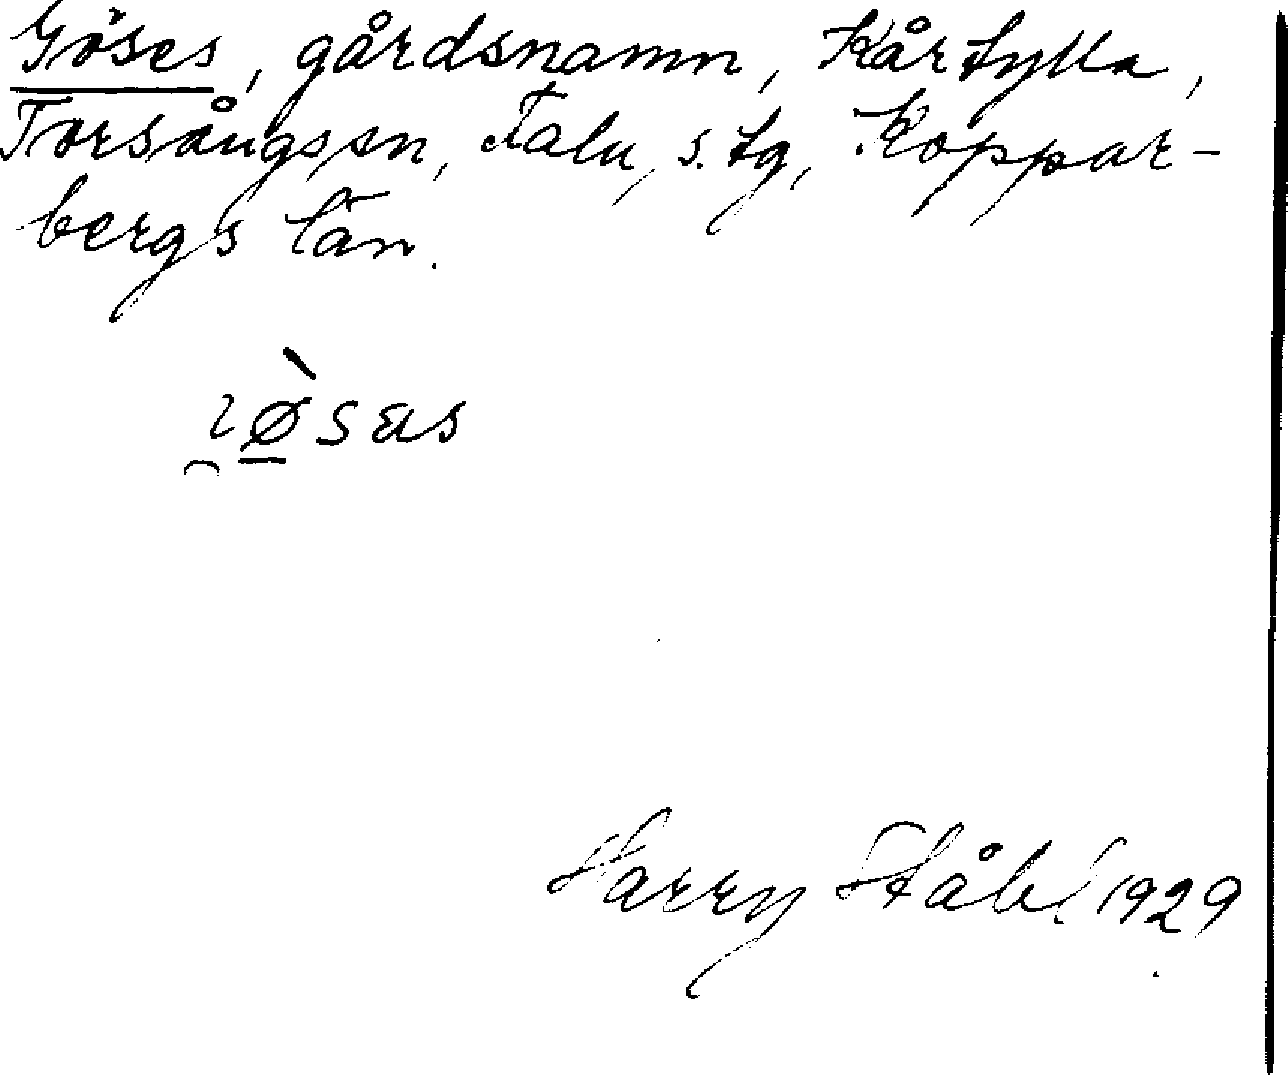 Göses, gårdsnamn, Kårtylla,
Torsångs sn, Falu s. tg, Koppar-
bergs län.
Harry Ståhl 1929